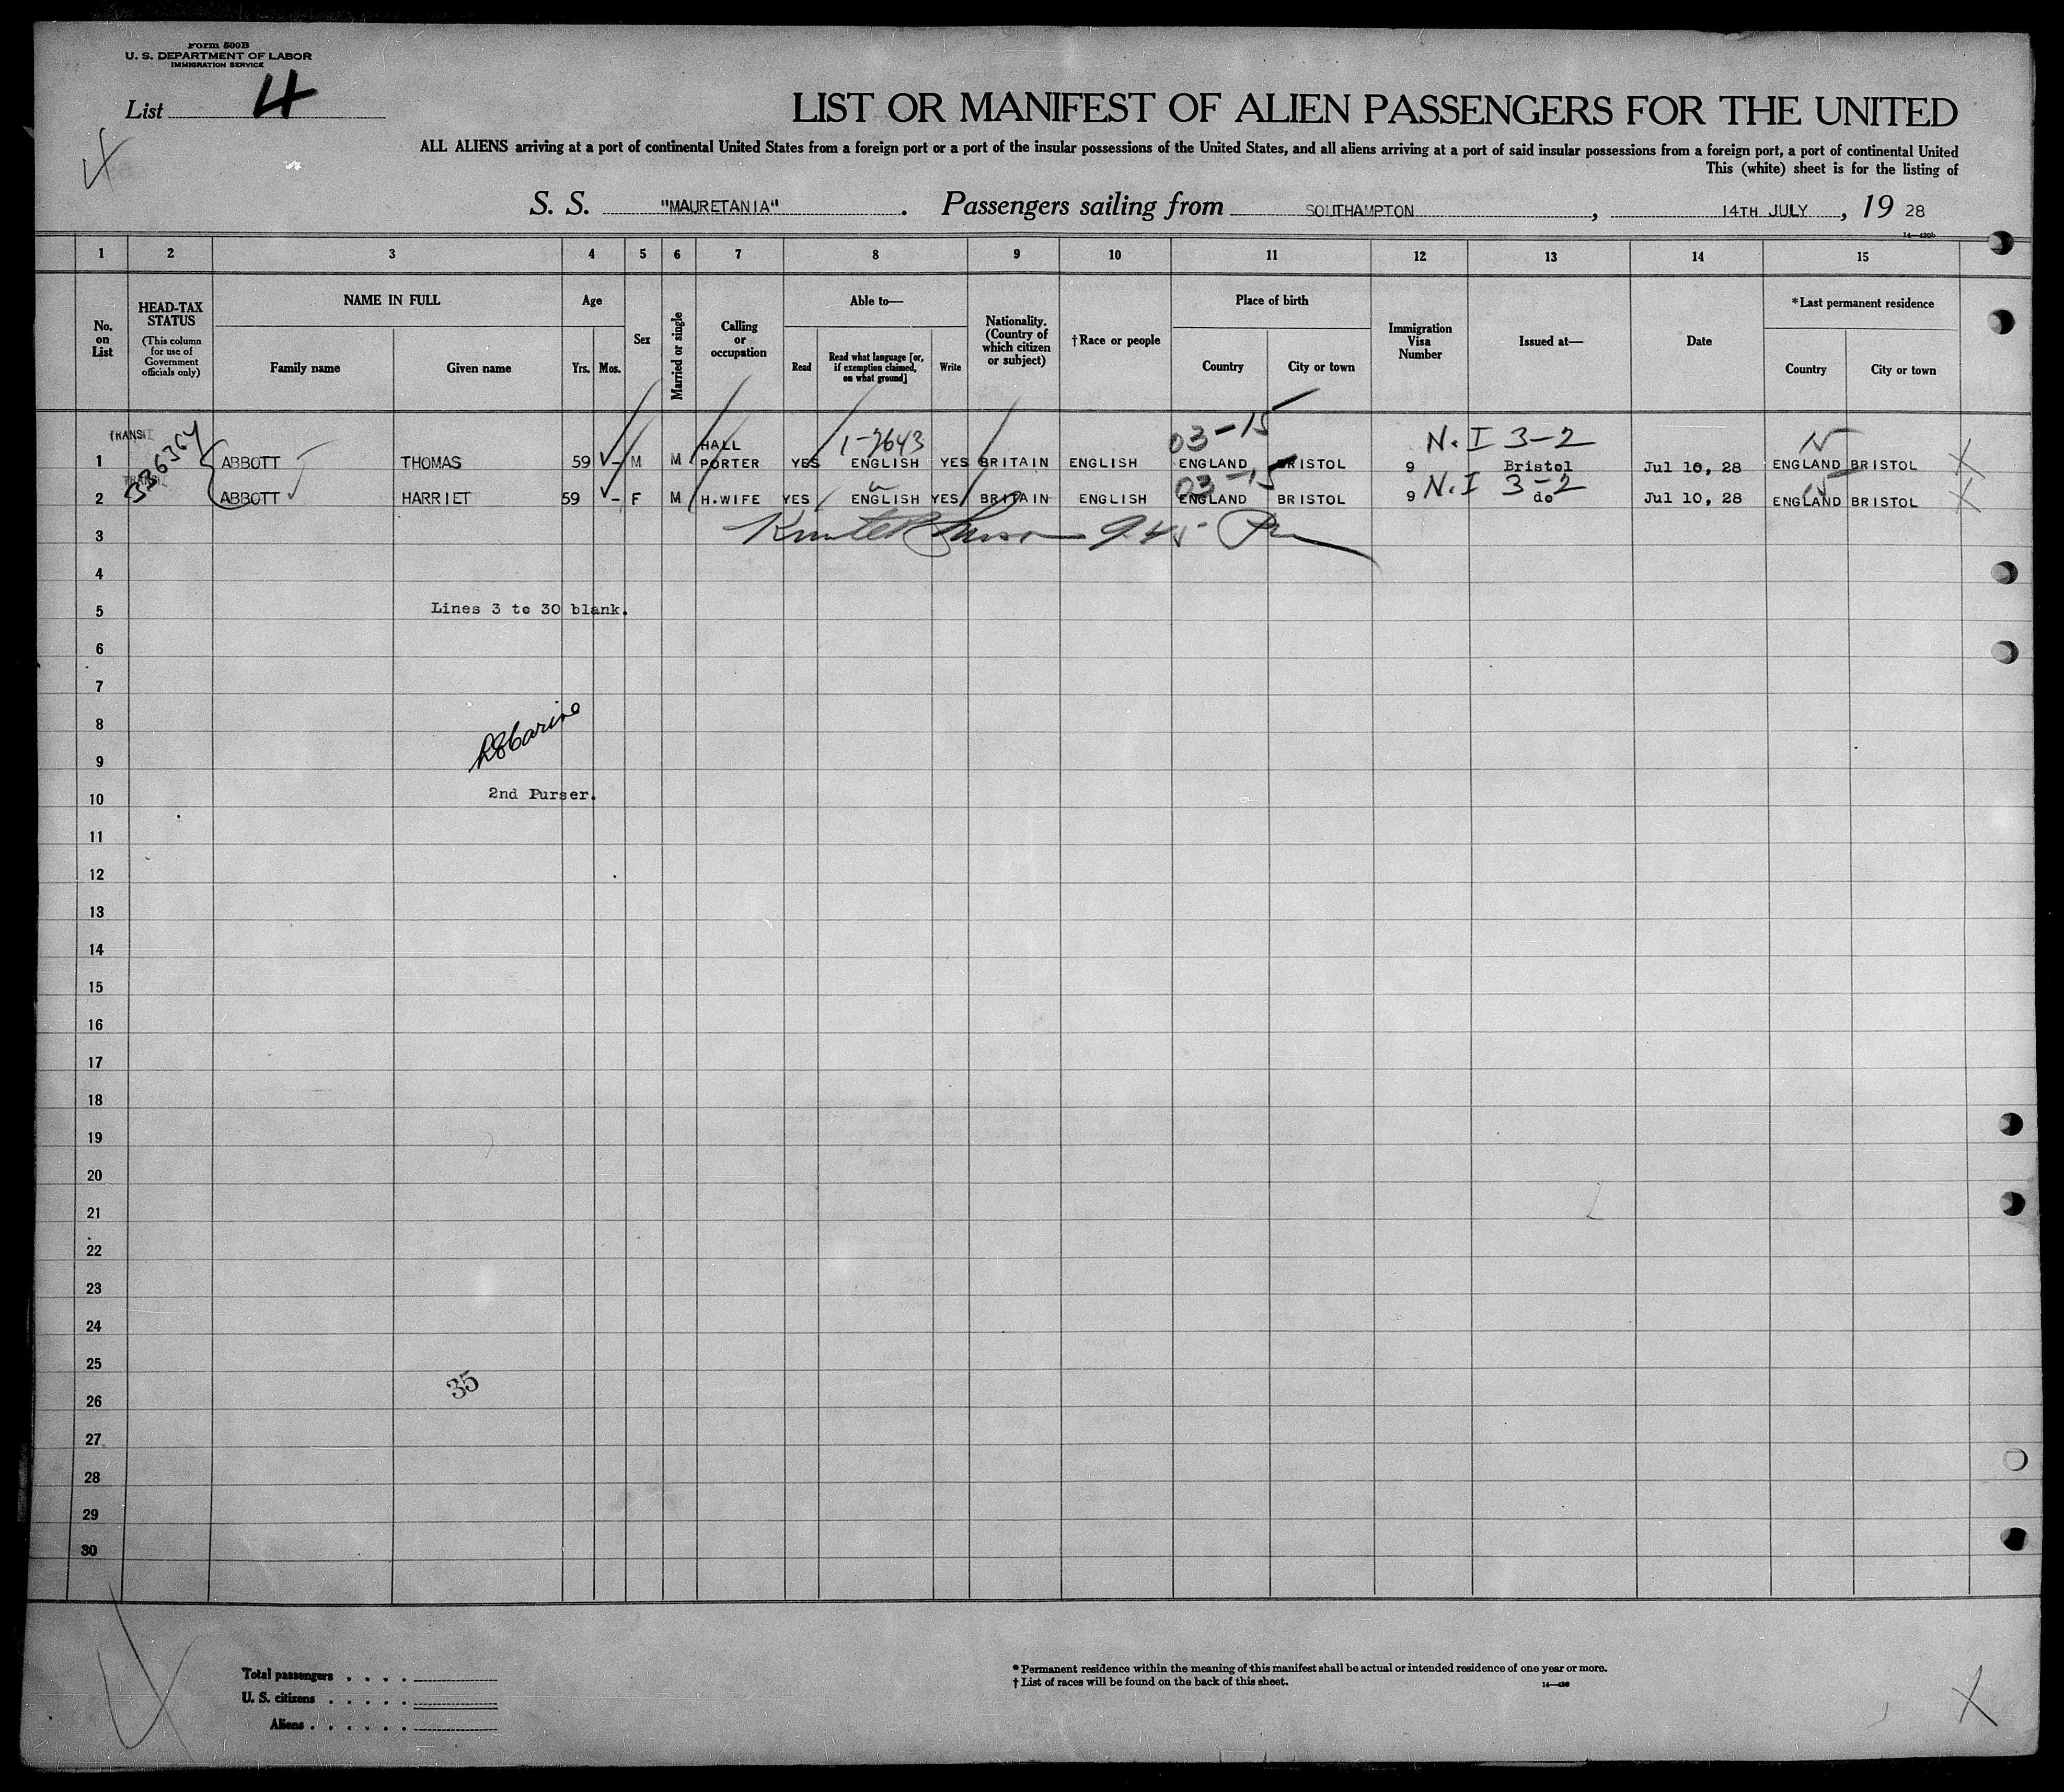 Form 500B
U. S. DEPARTMENT OF LABOR
IMMIGRATION SERVICE
List 4
4
LIST OR MANIFEST OF ALIEN PASSENGERS FOR THE UNITED
ALL ALIENS arriving at a port of continental United States from a foreign port or a port of the insular possessions of the United States, and all aliens arriving at a port of said insular possessions from a foreign port, a port of continental United
This (white) sheet is for the listing of
S. S. "MAURETANIA". Passengers sailing from SOUTHAMPTON, 14TH JULY, 19 28
14—430b
1 2 3 4 5 6 7 8 9 10 11 12 13 14 15
No. on List
HEAD-TAX STATUS
(This column for use of Government officials only)
NAME IN FULL
Family name Given name
Age
Yrs. Mos.
Sex
Married or single
Calling or occupation
Able to—
Read
Read what language [or, if exemption claimed, on what ground]
Write
Nationality. (Country of which citizen or subject)
†Race or people
Place of birth
Country City or town
Immigration Visa Number
Issued at—
Date
*Last permanent residence
Country City or town
TRANSIT 1-7643 03-15 N.I 3-2
336364
1 ABBOTT THOMAS 59 - M M HALL PORTER YES ENGLISH YES BRITAIN ENGLISH ENGLAND BRISTOL 9 Bristol Jul 10, 28 ENGLAND BRISTOL
TRANSIT 03-15 N.I 3-2
2 ABBOTT HARRIET 59 - F M H.WIFE YES ENGLISH YES BRITAIN ENGLISH ENGLAND BRISTOL 9 do Jul 10, 28 ENGLAND BRISTOL
3
4
5 Lines 3 to 30 blank.
6
7
8
9
10 2nd Purser.
11
12
13
14
15
16
17
18
19
20
21
22
23
24
25
35
26
27
28
29
30
Total passengers
U. S. citizens
Aliens
* Permanent residence within the meaning of this manifest shall be actual or intended residence of one year or more.
† List of races will be found on the back of this sheet.
14—430